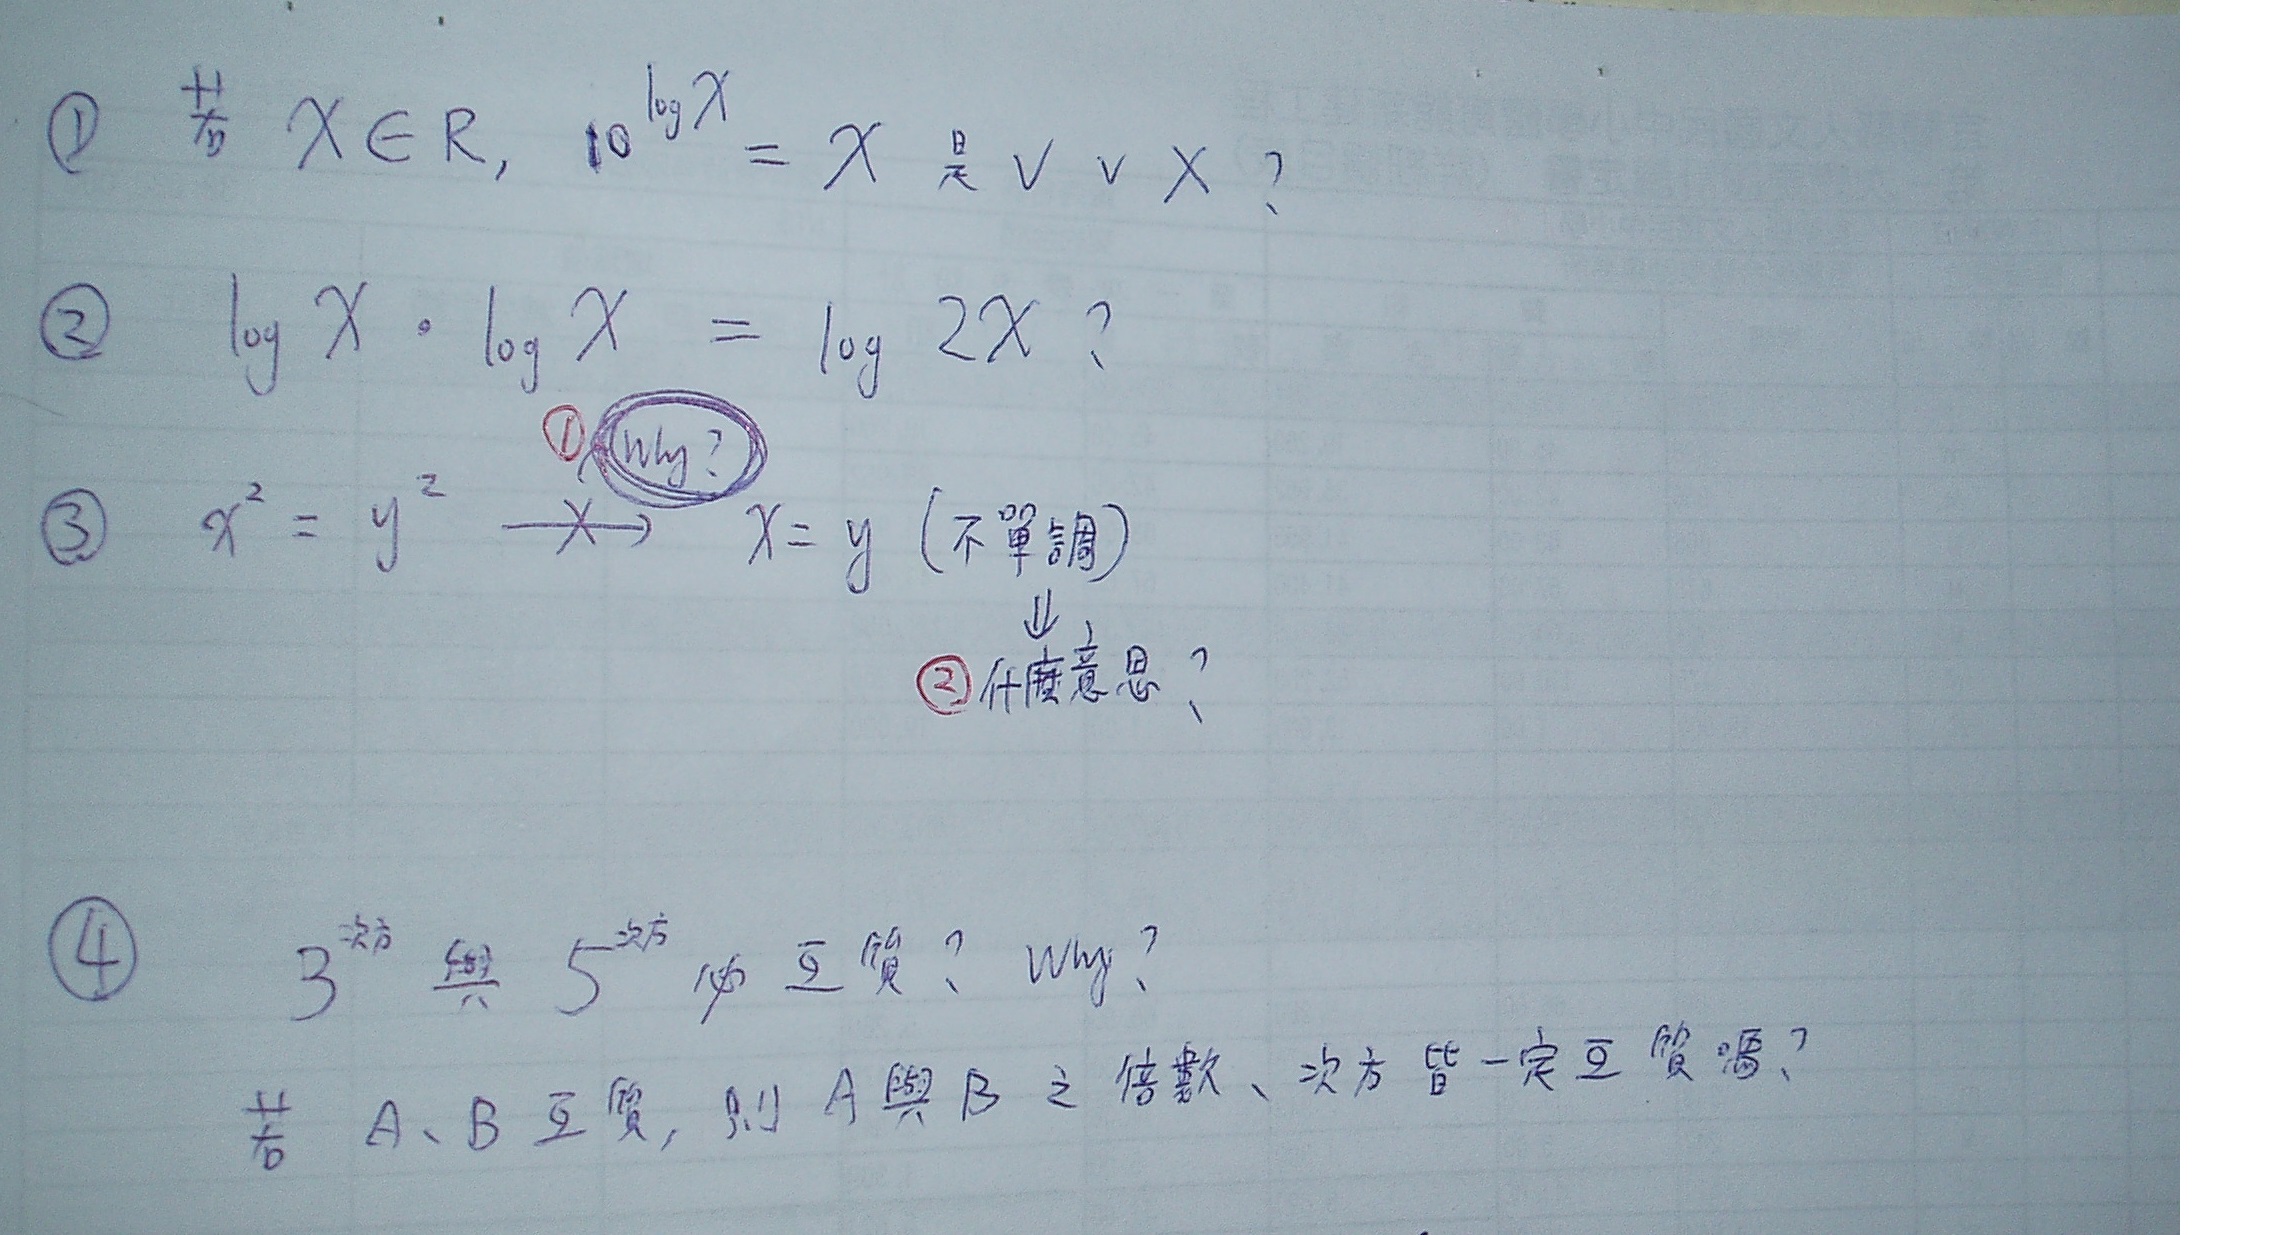 ① 若 X∈R, 10^logX = X 是 V v X ?
② log X · log X = log 2X ?
① Why?
③ x² = y² —X→ X = y (不單調)
⇓
② 什麼意思?
④ 3^次方 與 5^次方 必互質? Why?
若 A、B 互質, 則 A 與 B 之倍數、次方皆一定互質嗎?